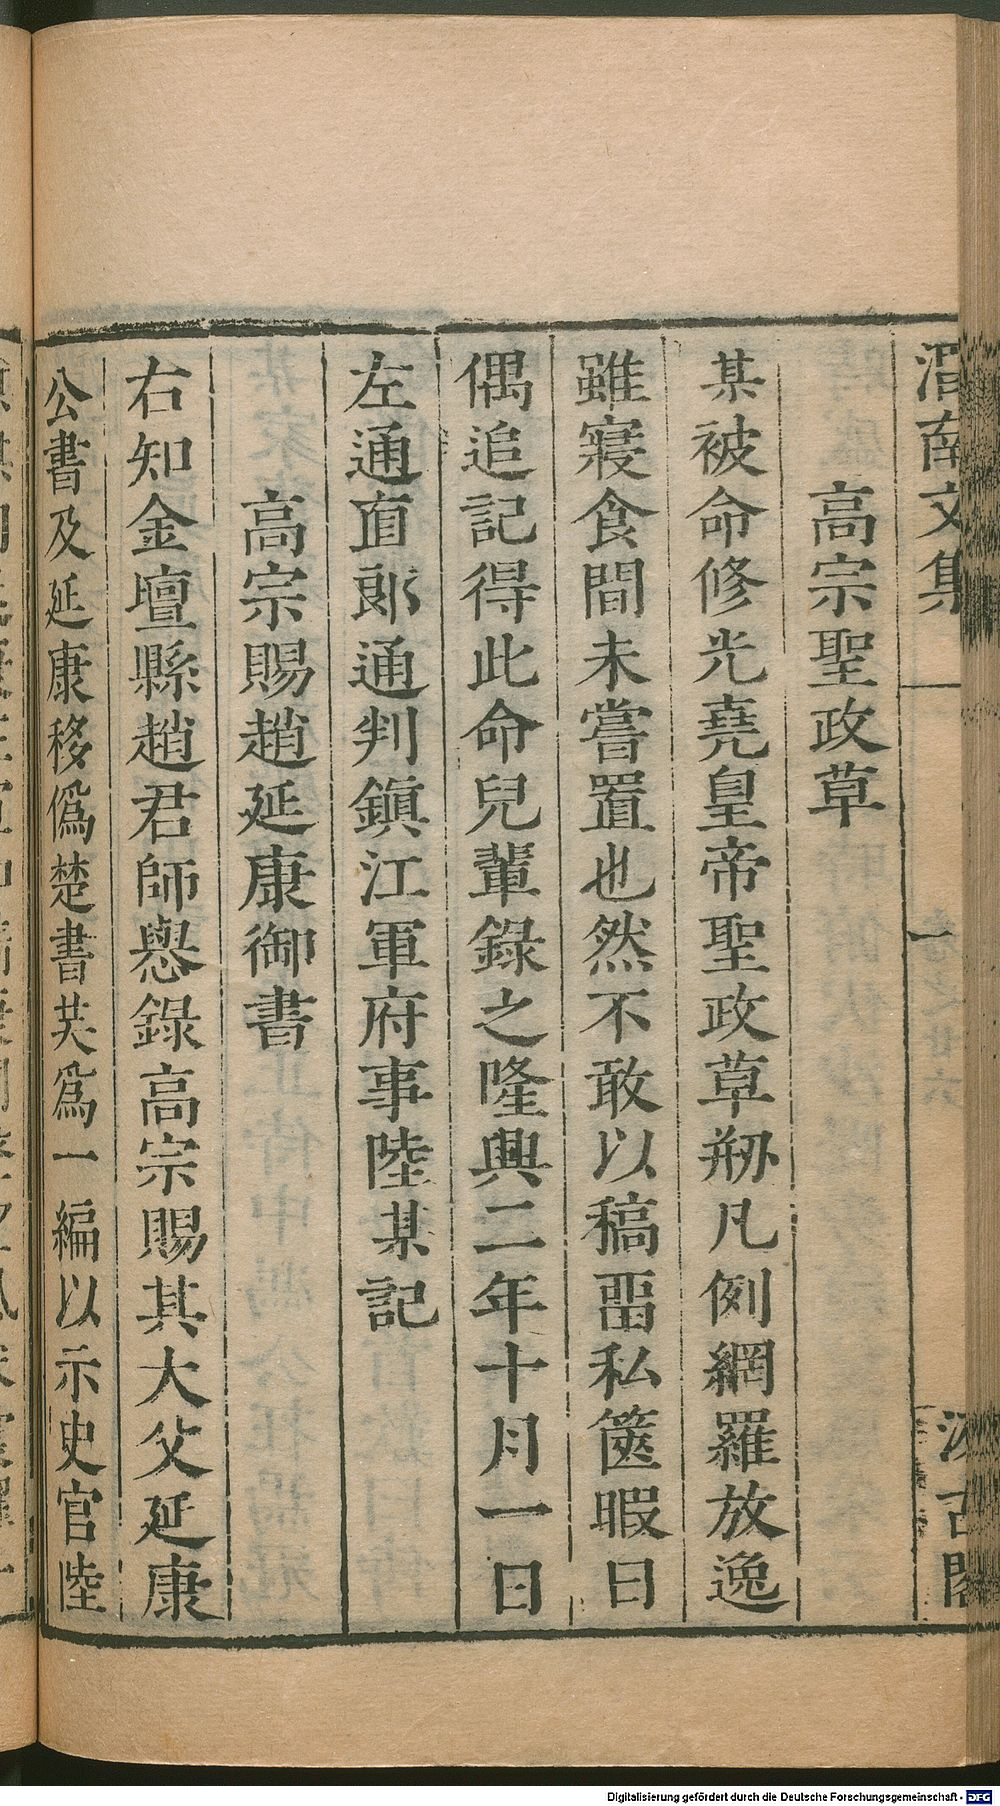 渭南文集
汲古閣
高宗聖政草
某被命修光堯皇帝聖政草剏凡例網羅放逸
雖寢食間未嘗置也然不敢以稿畱私篋暇日
偶追記得此命兒輩錄之隆興二年十月一日
左通直郎通判鎮江軍府事陸某記
高宗賜趙延康御書
右知金壇縣趙君師懸錄高宗賜其大父延康
公書及延康移僞楚書共爲一編以示史官陸
Digitalisierung gefördert durch die Deutsche Forschungsgemeinschaft - DFG